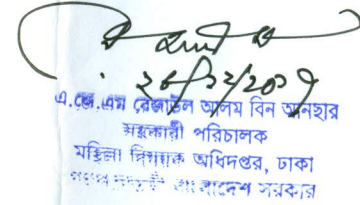 ২৮/১২/২০১৭
এ.জে.এম রেজাউল আলম বিন আনছার
সহকারী পরিচালক
মহিলা বিষয়ক অধিদপ্তর, ঢাকা
বাংলাদেশ সরকার